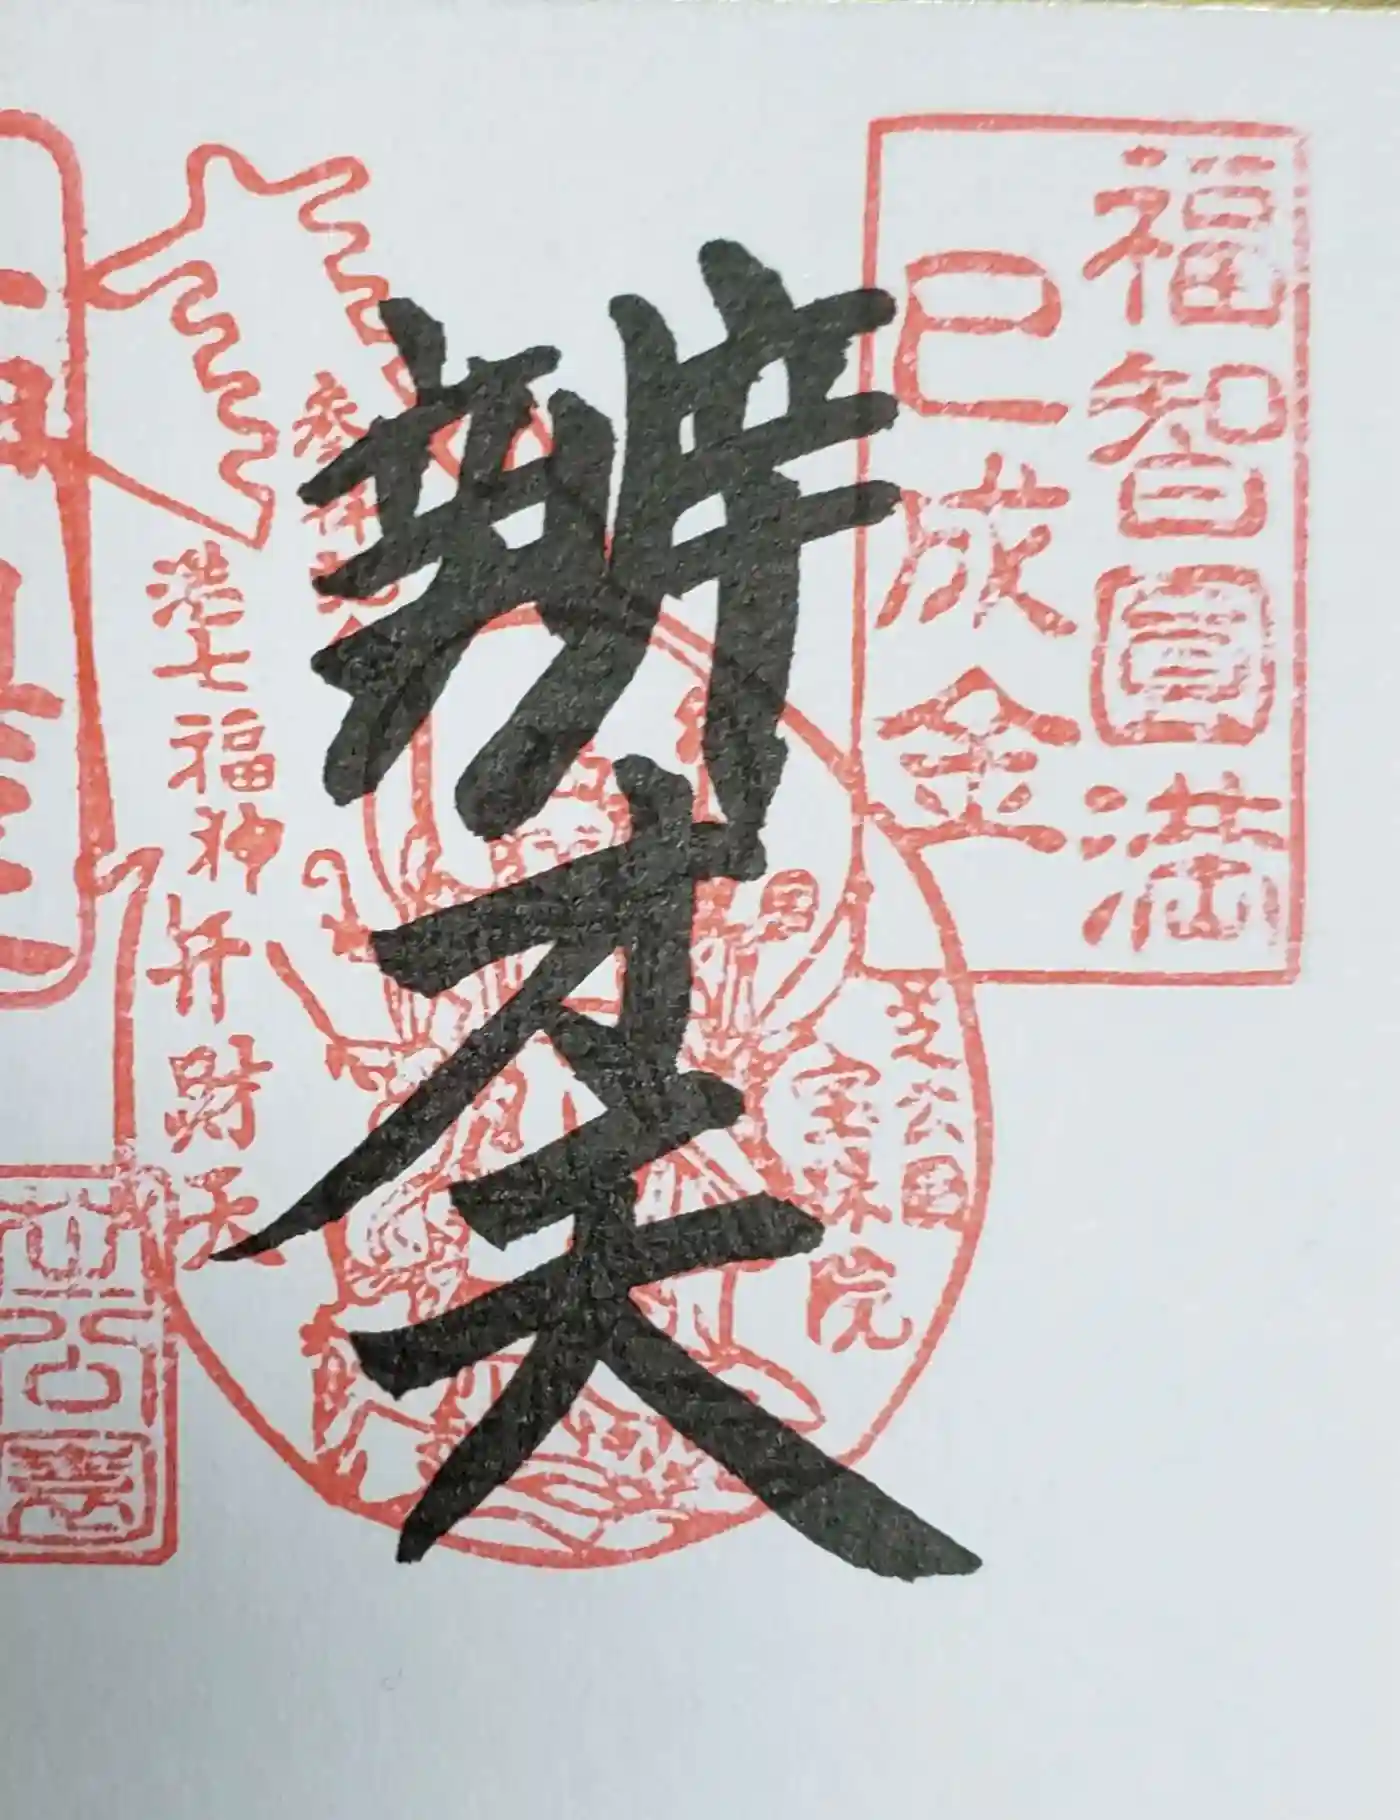 福智圓満
巳成金
辨才天
芝公園
宝珠院
港七福神弁財天